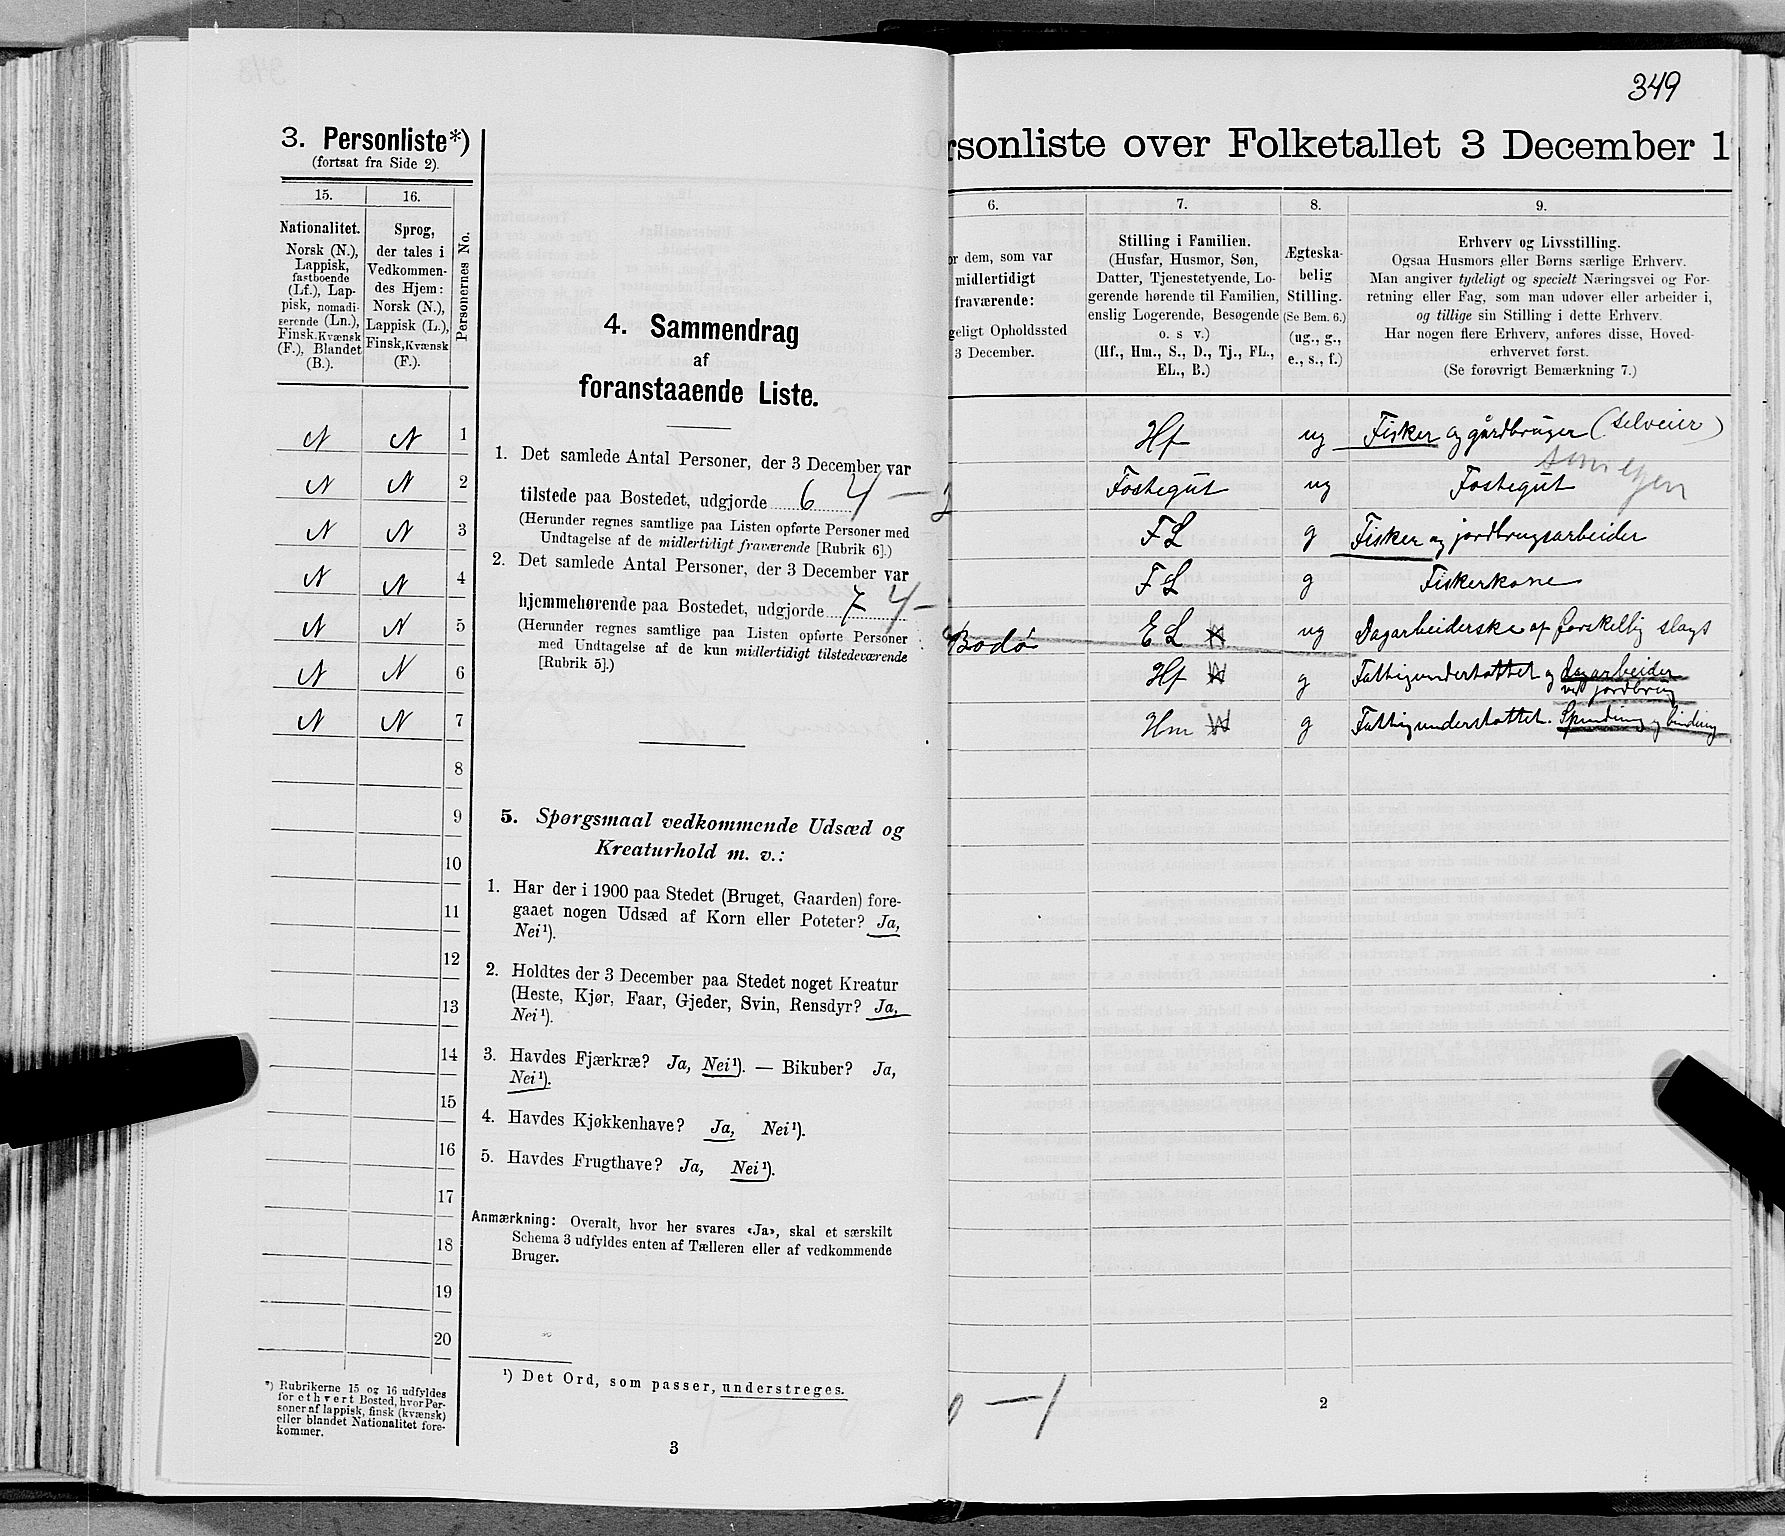 3. Personliste*)
(fortsat fra Side 2).
15. 16.
Personernes No.
Nationalitet.
Norsk (N.),
Lappisk,
fastboende
(Lf.), Lap-
pisk, nomadi-
serende (Ln.),
Finsk, Kvænsk
(F.), Blandet
(B.).
Sprog,
der tales i
Vedkommen-
des Hjem:
Norsk (N.),
Lappisk (L.),
Finsk, Kvænsk
(F.).
N N 1
N N 2
N N 3
N N 4
N N 5
N N 6
N N 7
8
9
10
11
12
13
14
15
16
17
18
19
20
*) Rubrikerne 15 og 16 udfyldes
for ethvert Bosted, hvor Per-
soner af lappisk, finsk (kvænsk)
eller blandet Nationalitet fore-
kommer.
4. Sammendrag
af
foranstaaende Liste.
1. Det samlede Antal Personer, der 3 December var
tilstede paa Bostedet, udgjorde 6 4 —
(Herunder regnes samtlige paa Listen opførte Personer med
Undtagelse af de midlertidigt fraværende [Rubrik 6].)
2. Det samlede Antal Personer, der 3 December var
hjemmehørende paa Bostedet, udgjorde 7 4 -
(Herunder regnes samtlige paa Listen opførte Personer
med Undtagelse af de kun midlertidigt tilstedeværende
[Rubrik 5].)
5. Spørgsmaal vedkommende Udsæd og
Kreaturhold m. v.:
1. Har der i 1900 paa Stedet (Bruget, Gaarden) fore-
gaaet nogen Udsæd af Korn eller Poteter? Ja,
Nei¹).
2. Holdtes der 3 December paa Stedet noget Kreatur
(Heste, Kjør, Faar, Gjeder, Svin, Rensdyr? Ja,
Nei¹).
3. Havdes Fjærkræ? Ja, Nei¹). — Bikuber? Ja,
Nei¹).
4. Havdes Kjøkkenhave? Ja, Nei¹).
5. Havdes Frugthave? Ja, Nei¹).
Anmærkning: Overalt, hvor her svares «Ja», skal et særskilt
Schema 3 udfyldes enten af Tælleren eller af vedkommende
Bruger.
¹) Det Ord, som passer, understreges.
3
349
rsonliste over Folketallet 3 December 1
6. 7. 8. 9.
or dem, som var
midlertidigt
fraværende:
geligt Opholdssted
3 December.
Stilling i Familien.
(Husfar, Husmor, Søn,
Datter, Tjenestetyende, Lo-
gerende hørende til Familien,
enslig Logerende, Besøgende
o. s v.)
(Hf., Hm., S., D., Tj., FL.,
EL., B.)
Ægteska-
belig
Stilling.
(Se Bem. 6.)
(ug., g.,
e., s., f.)
Erhverv og Livsstilling.
Ogsaa Husmors eller Børns særlige Erhverv.
Man angiver tydeligt og specielt Næringsvei og For-
retning eller Fag, som man udøver eller arbeider i,
og tillige sin Stilling i dette Erhverv.
Har nogen flere Erhverv, anføres disse, Hoved-
erhvervet først.
(Se forøvrigt Bemærkning 7.)
Hf ug Fisker og gårdbruger (selveier)
som egen
Fostegut ug Fostegut
FL g Fisker og jordbrugsarbeider
FL g Fiskerkone
Bodø EL ug Dagarbeiderske af forskellig slags
Hf g Fattigunderstøttet og dagarbeider
ved jordbrug
Hm g Fattigunderstøttet. Spinding og binding
— 1
2